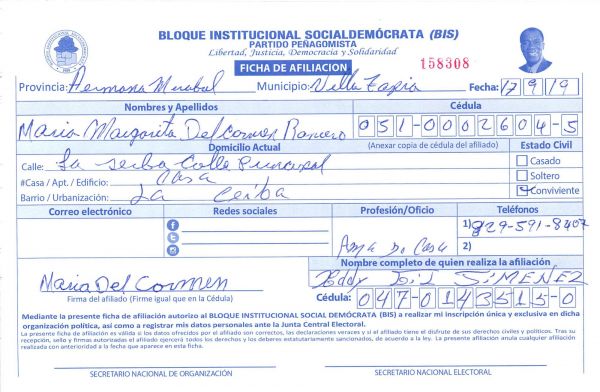 BLOQUE INSTITUCIONAL SOCIALDEMÓCRATA (BIS)
PARTIDO PEÑAGOMISTA
Libertad, Justicia, Democracia y Solidaridad
FICHA DE AFILIACION
158308
Provincia: Hermana Mirabal Municipio: Villa Tapia Fecha: 17 9 19
Nombres y Apellidos Cédula
Maria Margarita Del Carmen Romero 051-0002604-5
Domicilio Actual (Anexar copia de cédula del afiliado) Estado Civil
Calle: La Seiba Calle Principal Casado
#Casa / Apt. / Edificio: Casa Soltero
Barrio / Urbanización: La Ceiba Conviviente
Correo electrónico Redes sociales Profesión/Oficio Teléfonos
1) 829-591-8407
Ama De Casa 2)
Nombre completo de quien realiza la afiliación
Maria Del Carmen Eddy Gil Jimenez
Firma del afiliado (Firme igual que en la Cédula) Cédula: 047-0143515-0
Mediante la presente ficha de afiliación autorizo al BLOQUE INSTITUCIONAL SOCIAL DEMÓCRATA (BIS) a realizar mi inscripción única y exclusiva en dicha
organización política, así como a registrar mis datos personales ante la Junta Central Electoral.
La presente ficha de afiliación es válida si los datos ofrecidos por el afiliado son correctos, las declaraciones veraces y si el afiliado tiene el disfrute de sus derechos civiles y políticos. Tras su
recepción, sello y firmas autorizadas el afiliado ejercerá todos los derechos y los deberes estatutariamente sancionados, de acuerdo a la ley. La presente afiliación anula cualquier afiliación
realizada con anterioridad a la fecha que aparece en esta ficha.
SECRETARIO NACIONAL DE ORGANIZACIÓN SECRETARIO NACIONAL ELECTORAL